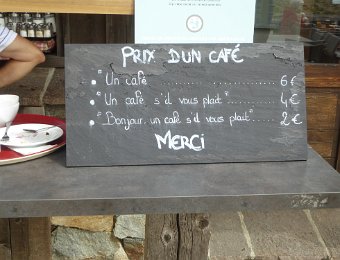 PRIX D'UN CAFÉ
"Un café ............ 6€
"Un café s'il vous plait" ......... 4€
"Bonjour, un café s'il vous plait" ... 2€
MERCI